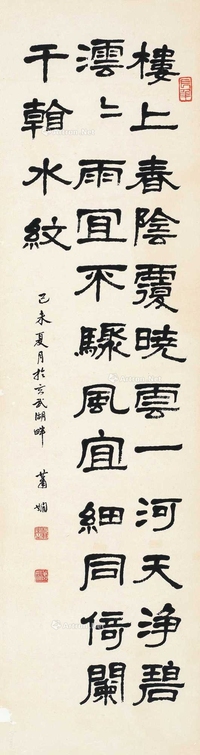 樓上春陰覆曉雲一河天淨碧
澐〻雨宜不驟風宜細同倚闌
干翰水紋
己未夏月於玄武湖畔 蕭嫻